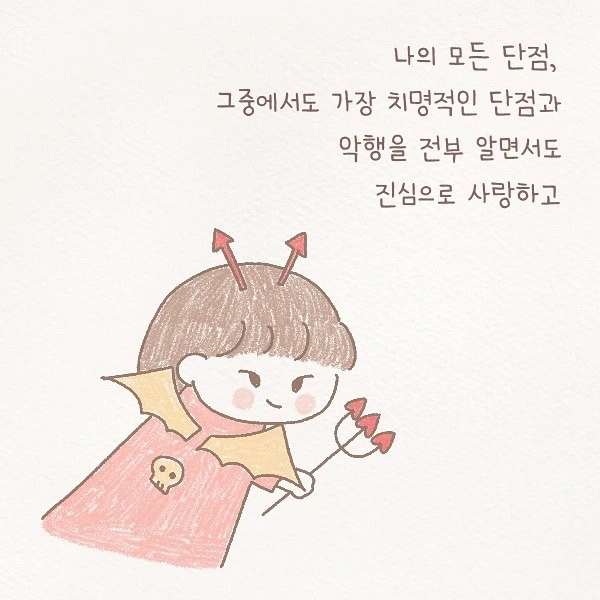 나의 모든 단점,
그중에서도 가장 치명적인 단점과
악행을 전부 알면서도
진심으로 사랑하고